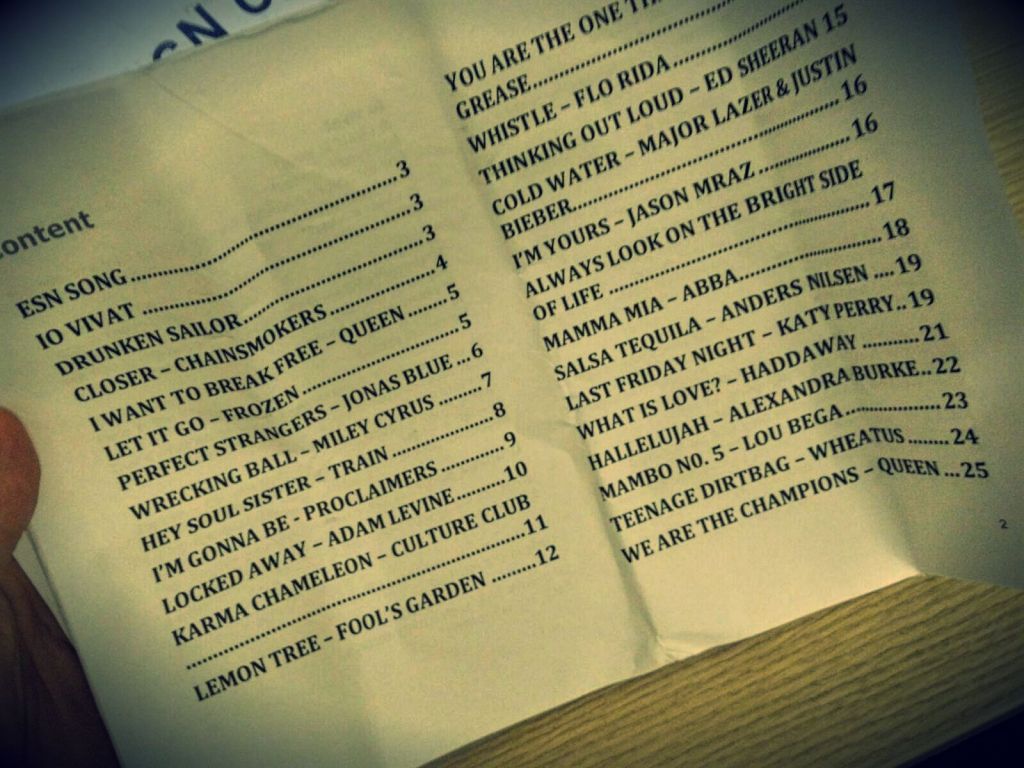 ontent
ESN SONG..........................................3
IO VIVAT ............................................3
DRUNKEN SAILOR............................3
CLOSER – CHAINSMOKERS ...............4
I WANT TO BREAK FREE – QUEEN ......5
LET IT GO – FROZEN.........................5
PERFECT STRANGERS – JONAS BLUE ...6
WRECKING BALL – MILEY CYRUS ........7
HEY SOUL SISTER – TRAIN ................8
I'M GONNA BE - PROCLAIMERS ..........9
LOCKED AWAY – ADAM LEVINE..........10
KARMA CHAMELEON – CULTURE CLUB
......................................................11
LEMON TREE – FOOL'S GARDEN ........12
YOU ARE THE ONE
GREASE..............................
WHISTLE – FLO RIDA ....................
THINKING OUT LOUD – ED SHEERAN 15
COLD WATER – MAJOR LAZER & JUSTIN
BIEBER............................................16
I'M YOURS – JASON MRAZ ................16
ALWAYS LOOK ON THE BRIGHT SIDE
OF LIFE ..........................................17
MAMMA MIA – ABBA.......................18
SALSA TEQUILA – ANDERS NILSEN ....19
LAST FRIDAY NIGHT – KATY PERRY..19
WHAT IS LOVE? – HADDAWAY ..........21
HALLELUJAH – ALEXANDRA BURKE..22
MAMBO N0. 5 – LOU BEGA ................23
TEENAGE DIRTBAG – WHEATUS ........24
WE ARE THE CHAMPIONS – QUEEN ...25
2